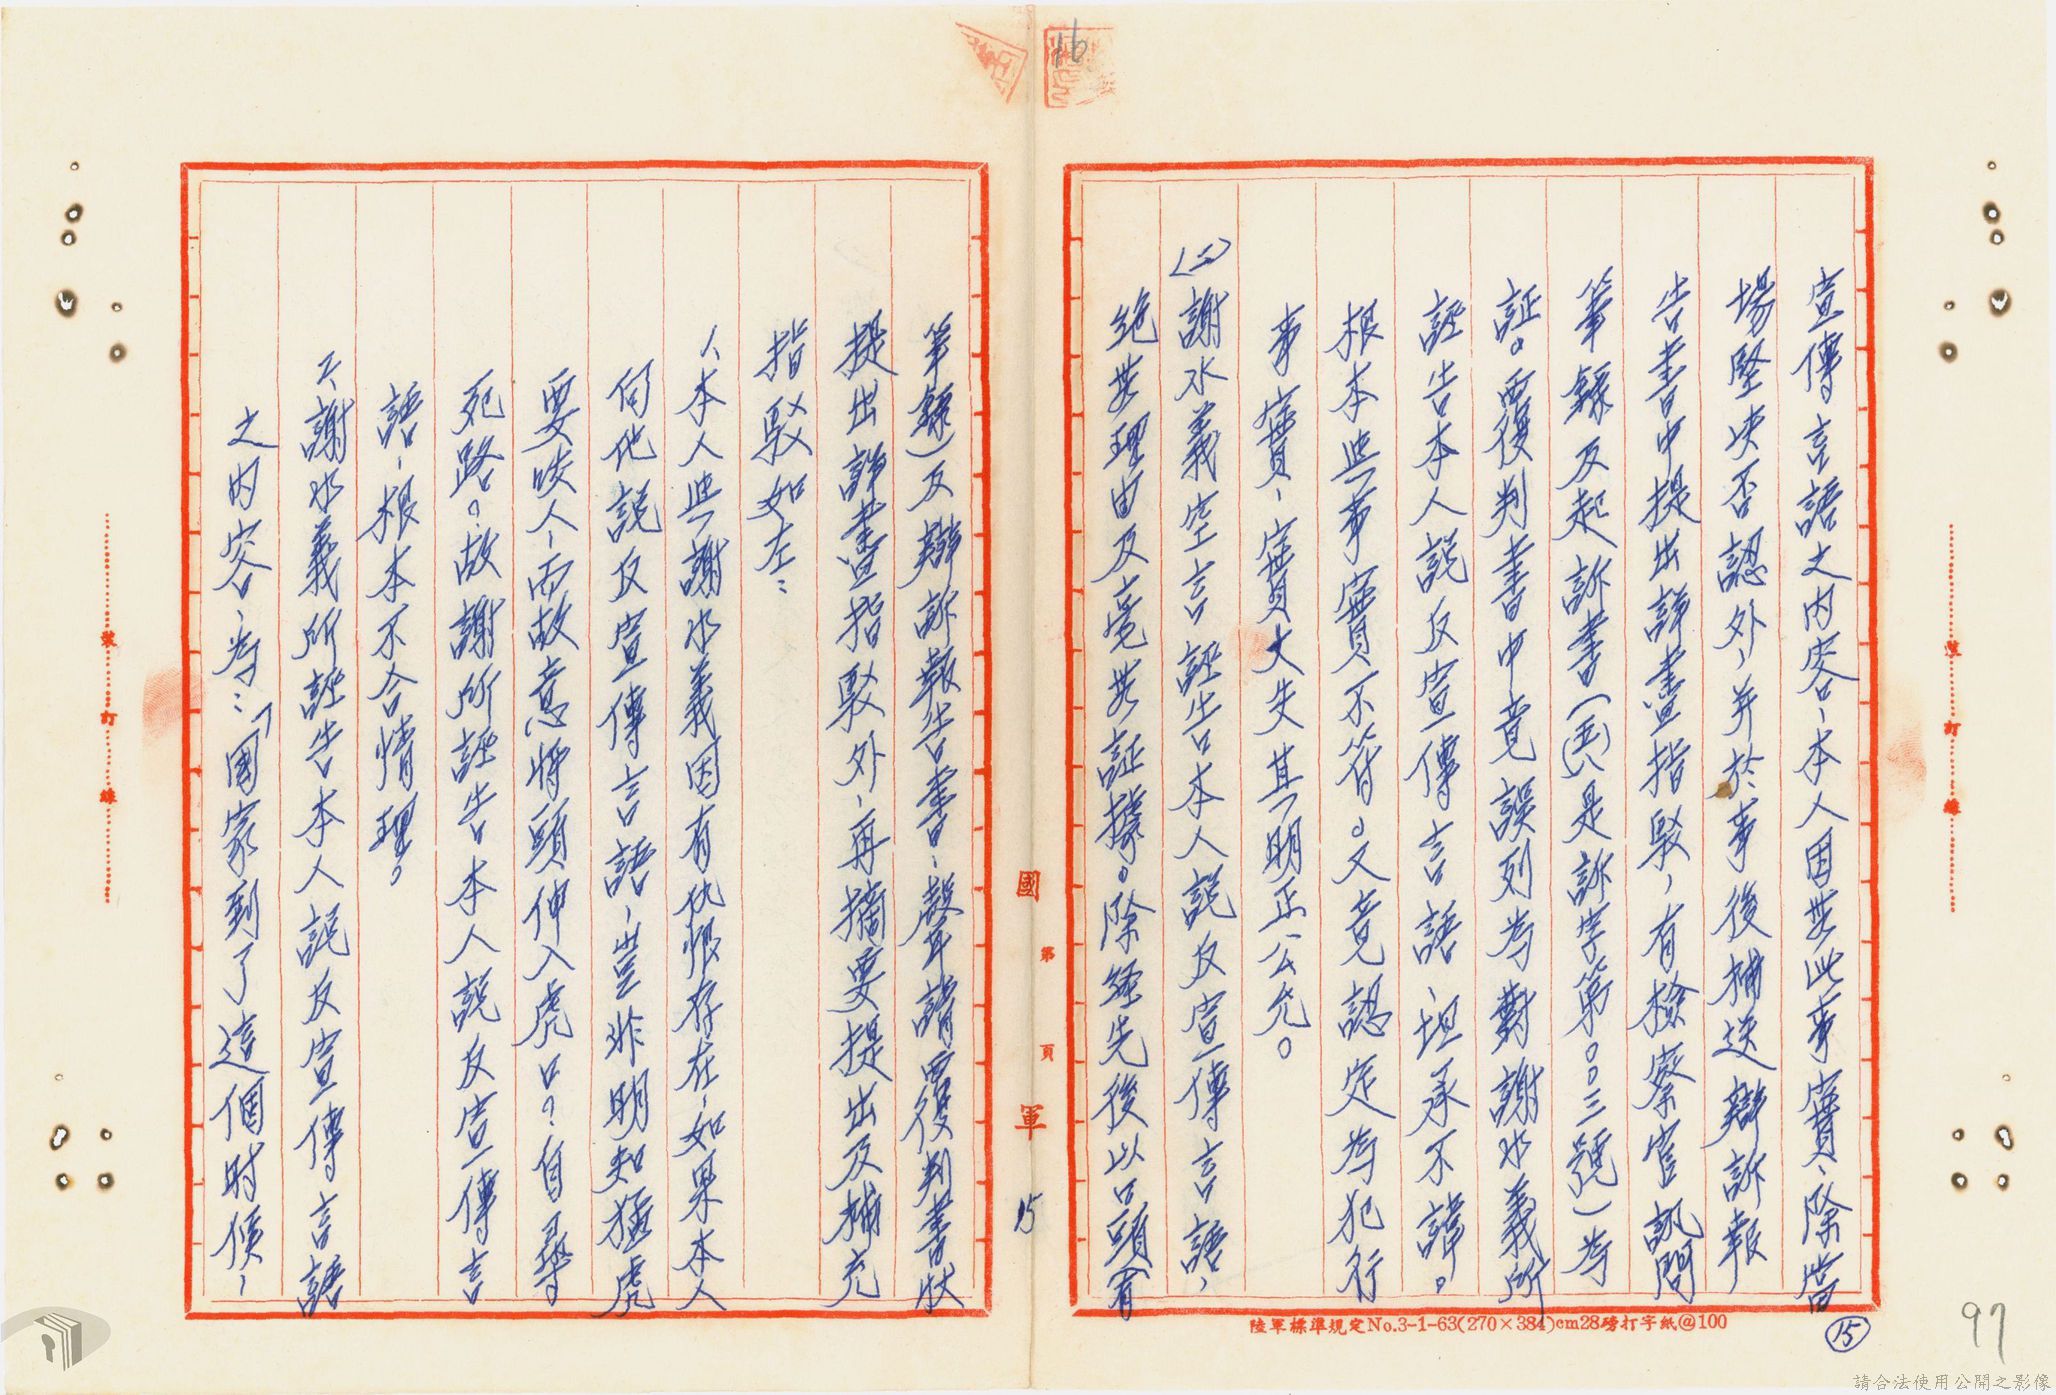 宣傳言語之內容、本人因無此事實、除當
場堅決否認外，并於事後補送辯訴報
告書中提出詳盡指駁，有檢察官訊問
筆錄及起訴書是訴字第〇〇三號)為
証。覆判書中竟誤列為對謝水義所
誣告本人說反宣傳言語、坦承不諱。
根本與事實不符。又竟認定為犯行
事實、實大失其明正公允。
(二)謝水義空言誣告本人說反宣傳言語，
絕無理由及毫無証據。除經先後以口頭(有
筆錄)及辯訴報告書、聲請覆判書狀
提出詳盡指駁外、再摘要提出及補充
指駁如左：
1、本人與謝水義因有仇恨存在、如果本人
向他說反宣傳言語、豈非明知猛虎
要咬人、而故意將頭伸入虎口？自尋
死路。故謝所誣告本人說反宣傳言
語、根本不合情理。
2、謝水義所誣告本人說反宣傳言語
之內容、為：「國家到了這個时候、
國軍
第 頁
15
裝訂線
裝訂線
陸軍標準規定No.3-1-63(270×384)cm28磅打字紙@100
15
16
97
請合法使用公開之影像